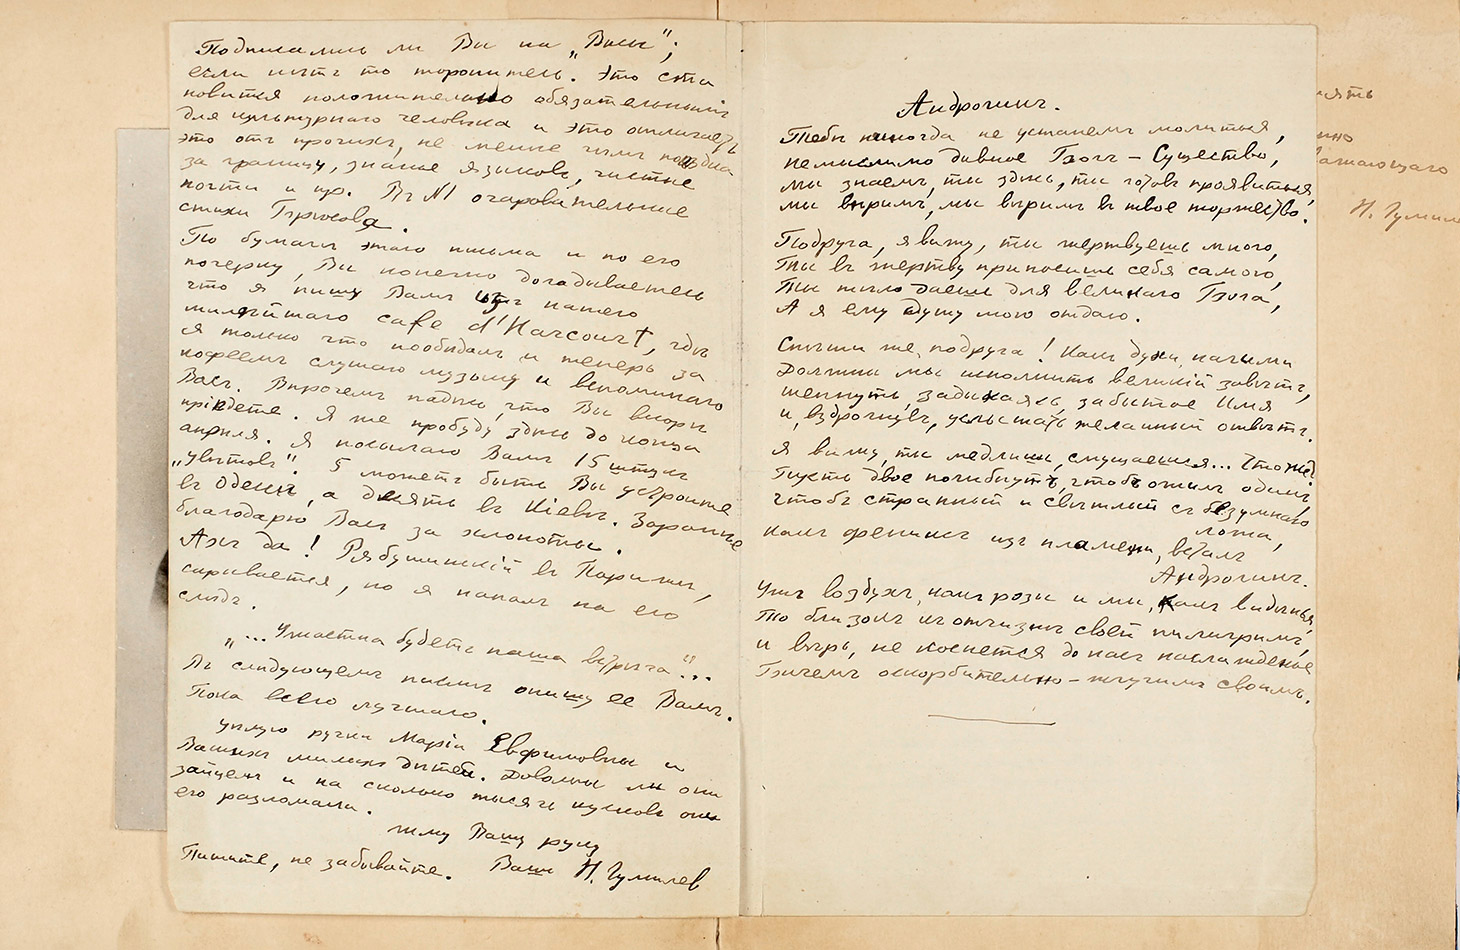 Подписались ли Вы на „Весы“;
если нѣтъ то торопитесь. Это ста
новится положительно обязательнымъ
для культурнаго человѣка и это отличаетъ
это отъ прочихъ, не менѣе чѣмъ поѣздка
за границу, знанье языковъ, чистые
ногти и пр. Въ №1 очаровательные
стихи Брюсова.
По бумагѣ этого письма и по его
почерку, Вы конечно догадываетесь
что я пишу Вамъ изъ нашего
милѣйшаго cafe d'Harcourt, гдѣ
я только что пообѣдалъ и теперь за
кофеемъ слушаю музыку и вспоминаю
Васъ. Впрочемъ надѣюсь, что Вы вскорѣ
пріѣдете. Я же пробуду здѣсь до конца
апрѣля. Я посылаю Вамъ 15 штукъ
„Цвѣтовъ“. 5 можетъ быть Вы устроите
въ Одессѣ, а десять въ Кіевѣ. Заранѣе
благодарю Васъ за хлопоты.
Ахъ да! Рябушинскій въ Парижѣ,
скрывается, но я напалъ на его
слѣдъ.
„...Ужасна будетъ наша встрѣча“...
Въ слѣдующемъ письмѣ опишу ее Вамъ.
Пока всего лучшаго.
Цѣлую ручки Маріи Евфимовны и
Вашихъ милыхъ дѣтей. Довольны ли они
зайцемъ и на сколько тысячъ кусковъ они
его разломали.
Жму Вашу руку
Пишите, не забывайте. Вашъ Н. Гумилев
Андрогинъ.
Тебѣ никогда не устанемъ молиться,
Немыслимо дивное Богъ – Существо,
Мы знаемъ, ты здѣсь, ты готовъ проявиться,
Мы вѣримъ, мы вѣримъ въ твое торжество.
Подруга, я вижу, ты жертвуешь много,
Ты въ жертву приносишь себя самою,
Ты тѣло даешь для великаго Бога,
А я ему душу мою отдаю.
Спѣши же, подруга! Какъ духи, нагими
Должны мы исполнить великій завѣтъ,
Шепнуть, задыхаясь, забытое Имя
И, вздрогнувъ, услышать желанный отвѣтъ.
Я вижу, ты медлишь, смущаешься... Что же?
Пусть двое погибнутъ, чтобъ ожилъ одинъ,
Чтобъ странный и свѣтлый съ безумнаго
ложа,
Какъ фениксъ изъ пламени, всталъ
Андрогинъ.
Ужъ воздухъ, какъ розы и мы, какъ видѣнья,
То близокъ къ отчизнѣ своей пилигримъ,
И вѣрь, не коснется до насъ наслажденье
Бичемъ оскорбительно – жгучимъ своимъ.